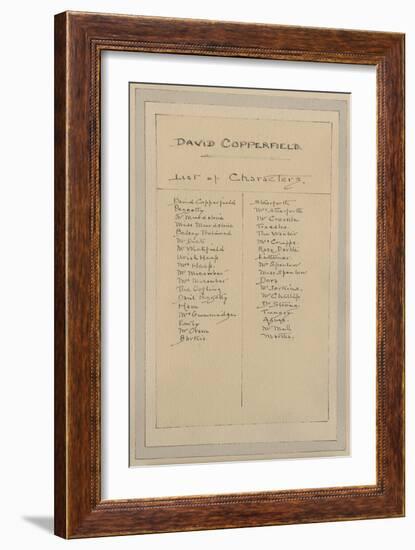 DAVID COPPERFIELD.
List of Characters.
David Copperfield
Peggotty
Mr Murdstone
Miss Murdstone
Betsey Trotwood
Mr Dick
Mr Wickfield
Uriah Heap
Mrs Heap.
Mr Micawber
Mrs Micawber
The Orfling
Danl Peggotty
Ham
Mrs Gummidge
Emily
Mr Omer
Barkis.
Steerforth
Mrs Steerforth
Mr Creakle
Traddles
The Waiter
Mrs Crupps.
Rosa Dartle
Littimer.
Mr Spenlow
Miss Spenlow
Dora
Mr Jorkins.
Mr Chillip
Dr Strong.
Tungey
Agnes.
Mr Mell
Martha.